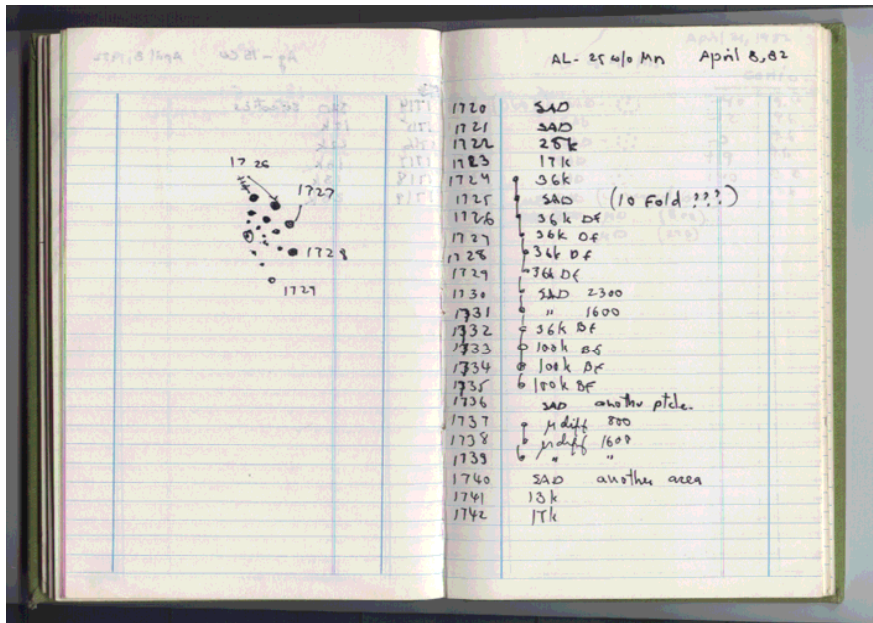 1726
1727
1728
1729
AL- 25 w/o Mn April 8, 82
1720 SAD
1721 SAD
1722 25k
1723 17k
1724 36k
1725 SAD (10 Fold ???)
1726 36k Df
1727 36k Df
1728 36k Df
1729 36k Df
1730 SAD 2300
1731 " 1600
1732 36k Bf
1733 100k Bf
1734 100k Bf
1735 100k BF
1736 SAD another ptcle.
1737 μdiff 800
1738 μdiff 1600
1739 " "
1740 SAD another area
1741 13k
1742 17k